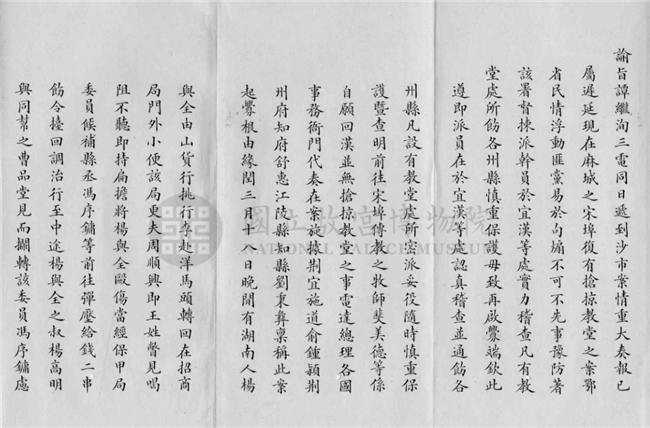 諭旨譚繼洵三電同日遞到沙市案情重大奏報已
屬遲延現在麻城之宋埠復有搶掠教堂之案鄂
省民情浮動匪黨易於勾煽不可不先事豫防著
該署督揀派幹員於宜漢等處實力稽查凡有教
堂處所飭各州縣慎重保護毋致再啟釁端欽此
遵即派員在於宜漢等處認真稽查並通飭各
州縣凡設有教堂處所密派妥役隨時慎重保
護暨查明前往宋埠傳教之牧師斐美德等係
自願回漢並無搶掠教堂之事電達總理各國
事務衙門代奏在案施據荆宜施道俞鍾穎荆
州府知府舒惠江陵縣知縣劉秉彝稟稱此案
起釁根由緣閏三月十八日晚間有湖南人楊
與全由山貨行挑行李赴洋馬頭轉回在招商
局門外小便該局更夫周順興即王姓瞥見喝
阻不聽即持扁擔將楊與全毆傷當經保甲局
委員候補縣丞馮序鏞等前往彈壓給錢二串
飭令擡回調治行至中途楊與全之叔楊高明
與同幫之曹品堂見而攔轉該委員馮序鏞處
國立故宮博物院
NATIONAL PALACE MUSEUM